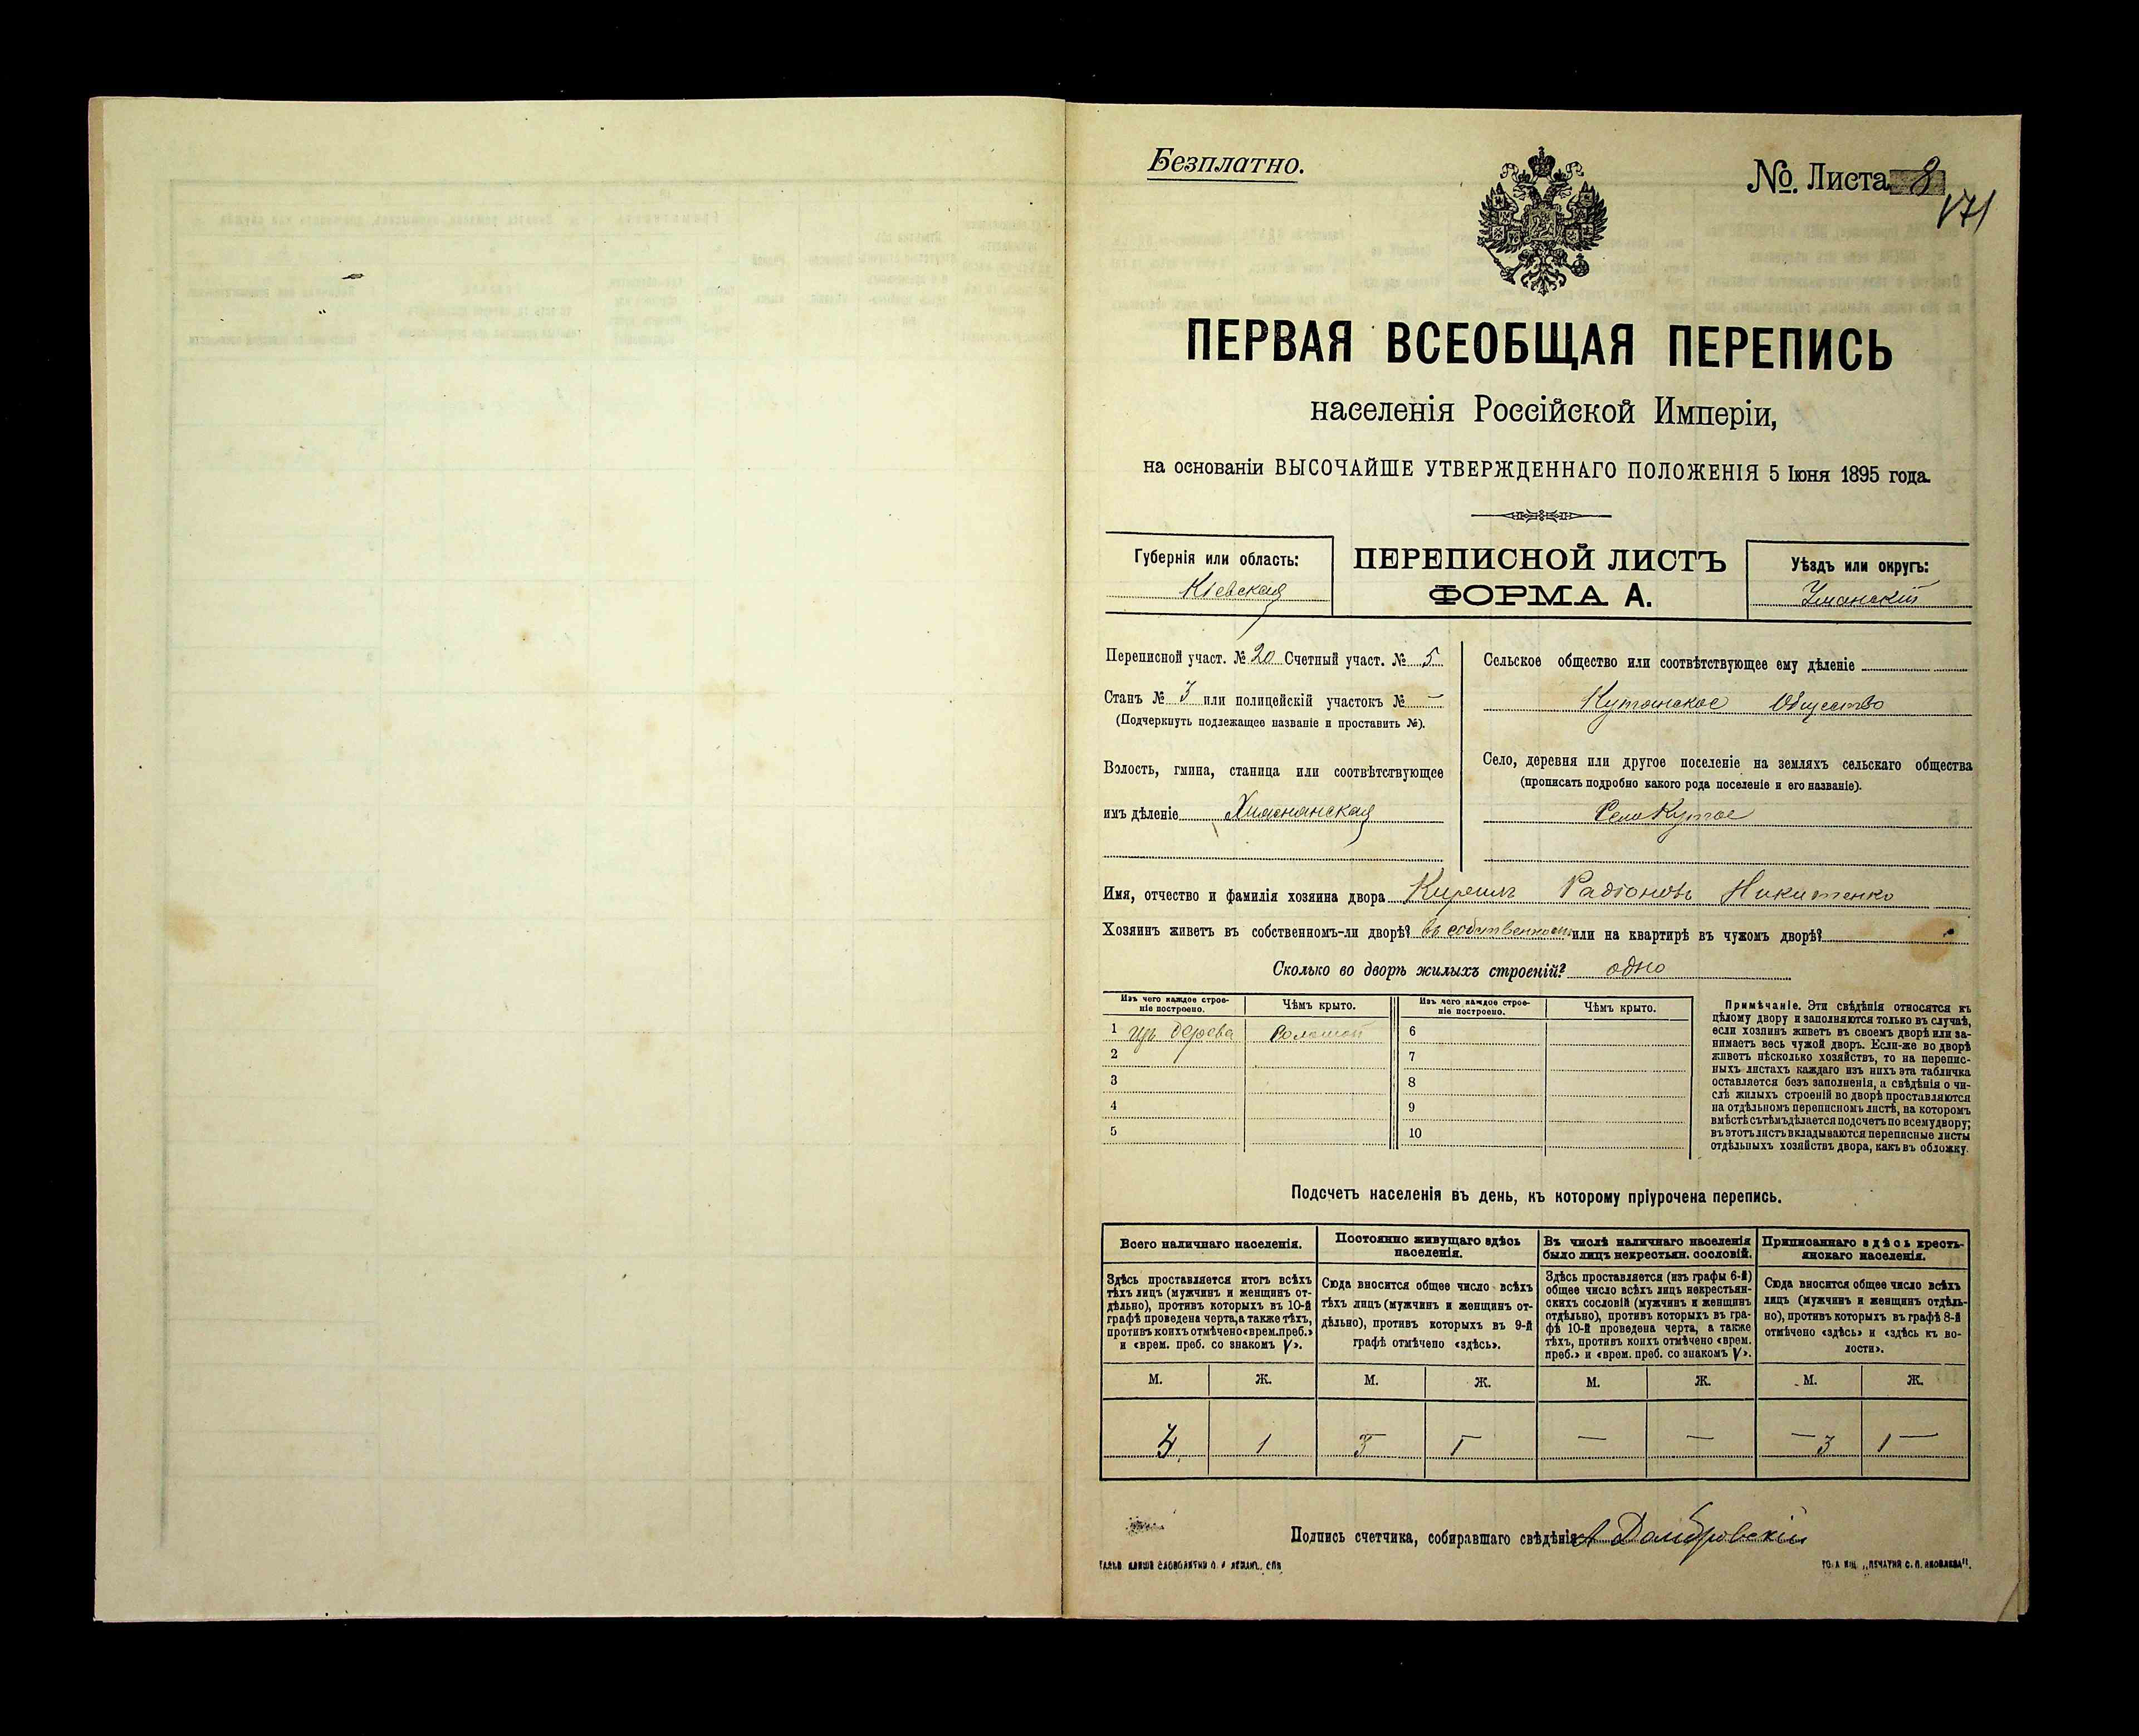 Безплатно.
№. Листа 8
171
ПЕРВАЯ ВСЕОБЩАЯ ПЕРЕПИСЬ
населенія Россійской Имперіи,
на основаніи ВЫСОЧАЙШЕ УТВЕРЖДЕННАГО ПОЛОЖЕНІЯ 5 Іюня 1895 года.
Губернія или область:
Кіевская
ПЕРЕПИСНОЙ ЛИСТЪ
ФОРМА А.
Уѣздъ или округъ:
Уманскій
Переписной участ. № 20 Счетный участ. № 5
Станъ № 3 или полицейскій участокъ № —
(Подчеркнуть подлежащее названіе и проставить №).
Волость, гмина, станица или соотвѣтствующее
имъ дѣленіе
Сельское общество или соотвѣтствующее ему дѣленіе
Кутянское Общество
Село, деревня или другое поселеніе на земляхъ сельскаго общества
(прописать подробно какого рода поселеніе и его названіе).
Село Кутое
Имя, отчество и фамилія хозяина двора Кирилъ Радіоновъ Никитенко
Хозяинъ живетъ въ собственномъ-ли дворѣ? въ собственномъ или на квартирѣ въ чужомъ дворѣ?
Сколько во дворѣ жилыхъ строеній? одно
Изъ чего каждое строе-
ніе построено.
Чѣмъ крыто.
Изъ чего каждое строе-
ніе построено.
Чѣмъ крыто.
1 изъ дерева Соломой
2
3
4
5
6
7
8
9
10
Примѣчаніе. Эти свѣдѣнія относятся къ
цѣлому двору и заполняются только въ случаѣ,
если хозяинъ живетъ въ своемъ дворѣ или за-
нимаетъ весь чужой дворъ. Если-же во дворѣ
живетъ нѣсколько хозяйствъ, то на перепис-
ныхъ листахъ каждаго изъ нихъ эта табличка
оставляется безъ заполненія, а свѣдѣнія о чи-
слѣ жилыхъ строеній во дворѣ проставляются
на отдѣльномъ переписномъ листѣ, на которомъ
вмѣстѣ съ тѣмъ дѣлается подсчетъ по всему двору;
въ этотъ листъ вкладываются переписные листы
отдѣльныхъ хозяйствъ двора, какъ въ обложку.
Подсчетъ населенія въ день, къ которому пріурочена перепись.
Всего наличнаго населенія.
Здѣсь проставляется итогъ всѣхъ
тѣхъ лицъ (мужчинъ и женщинъ от-
дѣльно), противъ которыхъ въ 10-й
графѣ проведена черта, а также тѣхъ,
противъ коихъ отмѣчено «врем. преб.»
и «врем. преб. со знакомъ V».
Постоянно живущаго здѣсь
населенія.
Сюда вносится общее число всѣхъ
тѣхъ лицъ (мужчинъ и женщинъ от-
дѣльно), противъ которыхъ въ 9-й
графѣ отмѣчено «здѣсь».
Въ числѣ наличнаго населенія
было лицъ некрестьян. сословій.
Здѣсь проставляется (изъ графы 6-й)
общее число всѣхъ лицъ некрестьян-
скихъ сословій (мужчинъ и женщинъ
отдѣльно), противъ которыхъ въ гра-
фѣ 10-й проведена черта, а также
тѣхъ, противъ коихъ отмѣчено «врем.
преб.» и «врем. преб. со знакомъ V».
Приписаннаго здѣсь кресть-
янскаго населенія.
Сюда вносится общее число всѣхъ
лицъ (мужчинъ и женщинъ отдѣль-
но), противъ которыхъ въ графѣ 8-й
отмѣчено «здѣсь» и «здѣсь къ во-
лости».
М. Ж. М. Ж. М. Ж. М. Ж.
1 3 1 — — — 3 1 —
Подпись счетчика, собиравшаго свѣдѣнія А Домбровскій